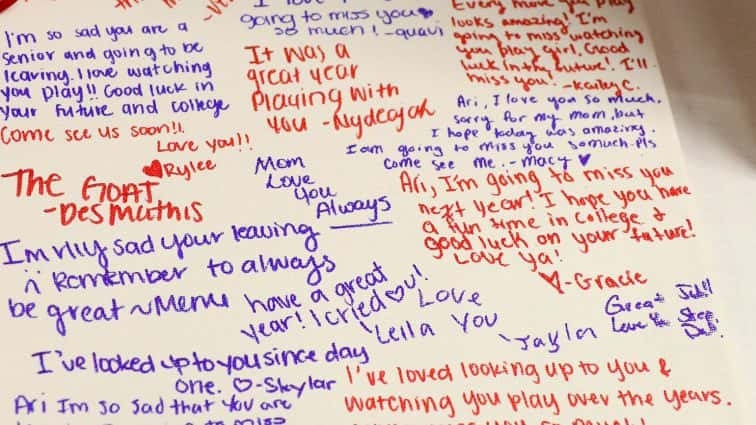 I'm so sad you are a
senior and going to be
leaving. I love watching
you play!! Good luck in
your future and college
Come see us soon!!
Love you!!
Rylee
going to miss you
so much! -quavi
It was a
great year
playing with
you -Nydeajah
Every move you play
looks amazing! I'm
going to miss watching
you play girl. Good
luck in the future! I'll
miss you! -Kailey C.
Ari, I love you so much,
sorry for my mom, but
I hope today was amazing.
I am going to miss you so much. Pls
come see me. - macy
Mom
Love
You
Always
THE GOAT
-Des Mathis
Ari, I'm going to miss you
next year! I hope you have
a fun time in college &
good luck on your future!
Love ya!
-Gracie
I'm rlly sad your leaving
Remember to always
be great ~Meme
have a great
year! I cried u!
Leila
Love
You
Jayla
Great Job!!
Love
I've looked up to you since day
one. -Skylar
I've loved looking up to you &
watching you play over the years.
Ari Im so sad that you are